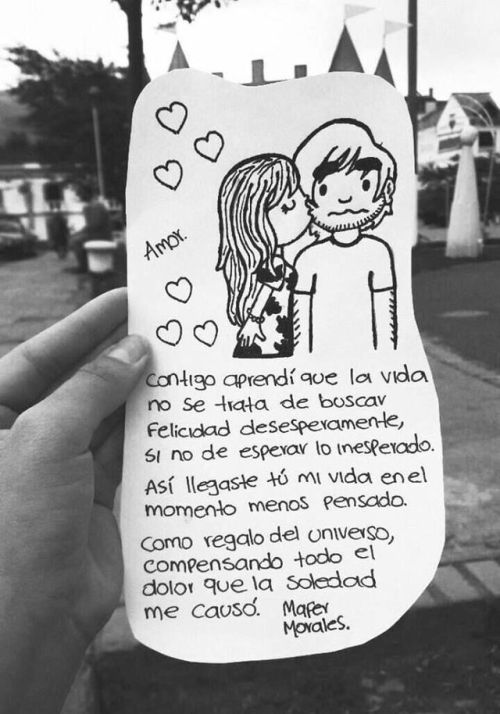 Amor.
contigo aprendí que la vida
no se trata de buscar
felicidad desesperamente,
si no de esperar lo inesperado.
Así llegaste tú mi vida en el
momento menos pensado.
como regalo del universo,
compensando todo el
dolor que la soledad
me causó. Mafer
Morales.